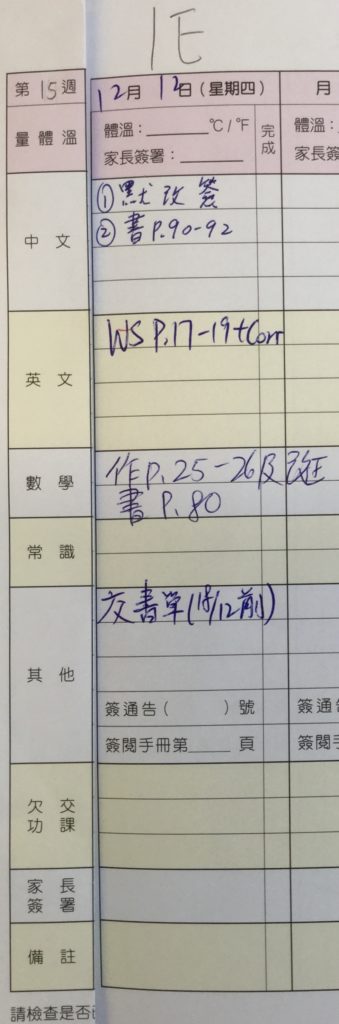 1E
第15週 12月12日(星期四) 月
量體溫 體溫:______°C/°F 完成 體溫:
家長簽署:______ 家長簽
中文 ①默改簽
②書P.90-92
英文 WS P.17-19+Corr
數學 作P.25-26及改正
書P.80
常識
其他 交書單(18/12前)
簽通告( )號 簽通告
簽閱手冊第____頁 簽閱手
欠交功課
家長簽署
備註
請檢查是否